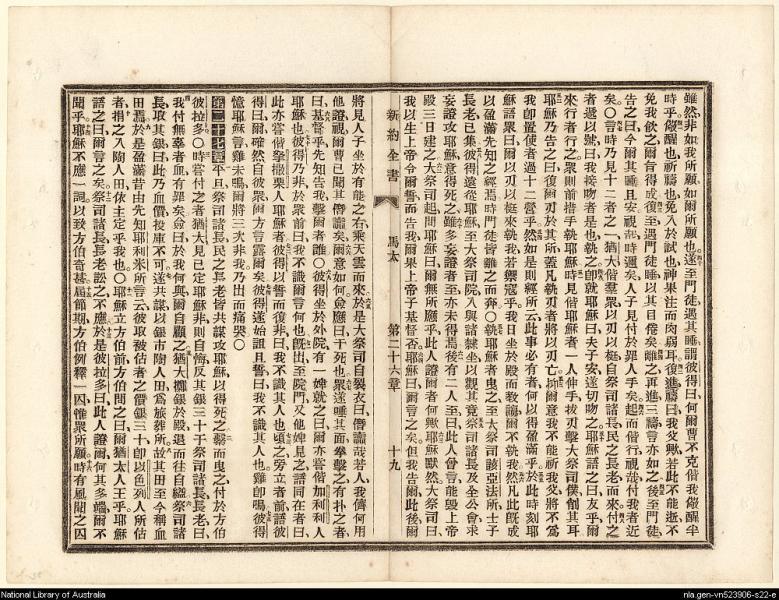 雖然非如我所願如爾所願也遂至門徒遇其睡謂彼得曰何爾曹不克偕我儆醒半
時乎儆醒也祈禱也免入於試也神果注而肉弱耳復進禱曰我父歟若此不能逝不
免我飲之爾旨得成復至遇門徒睡以其目倦矣離之再進三禱言亦如之後至門徒
告之曰今爾其睡且安視哉時邇矣人子見付於罪人手矣起而偕行視哉付我者近
矣〇言時乃見十二者之一猶大偕羣衆以刃以梃自祭司諸長民之長老而來付之
者遞以號曰我接吻者是也執之卽就耶穌曰夫子安遂切吻之耶穌語之曰友乎爾
來行者行之衆則前措手執耶穌時見偕耶穌者一人伸手拔刃擊大祭司僕剒其耳
耶穌乃告之曰復爾刃於其所蓋凡執刃者將以刃亡抑爾意我不能祈我父將不爲
我卽置使者過十二營乎然如是則經所云此事必有者何以得盈滿乎於此時刻耶
穌語衆曰爾以刃以梃來執我若禦寇乎我日坐於殿而教誨爾不執我然凡此旣成
以盈滿先知之經焉時門徒皆離之而奔〇執耶穌者曳之至大祭司該亞法所士子
長老已集彼得遠從耶穌至大祭司院入與諸隸坐以觀其竟祭司諸長及全公會求
妄證攻耶穌意得死之雖多妄證者至亦未得焉後有二人至曰此人曾言能毁上帝
殿三日建之大祭司起問耶穌曰爾無所應乎此人證爾者何歟耶穌默然大祭司曰
我以生上帝令爾誓而告我爾果上帝子基督否耶穌曰爾言之矣但我告爾此後爾
新約全書
馬太
第二十六章
十九
將見人子坐於有能之右乘天雲而來於是大祭司自裂衣曰僭讟哉若人我儕何用
他證視爾曹已聞其僭讟矣爾意如何僉應曰干死也衆遂唾其面拳擊之有扑之者
曰基督乎先知告我擊爾者誰〇彼得坐於外院有一婢就之曰爾亦嘗偕加利利人
耶穌也彼得乃於衆前曰我不識爾言何也旣出至院門又他婢見之語同在者曰
此亦嘗偕拏撒栗人耶穌者彼得以誓而復非曰我不識其人也頃之旁立者前語彼
得曰爾確然自彼衆爾方言露爾矣彼得遂始詛且誓曰我不識其人也雞卽鳴彼得
憶耶穌言雞未鳴爾將三次非我乃出而痛哭〇
第二十七章平旦祭司諸長民之長老皆共謀攻耶穌以得死之繫而曳之付於方伯
彼拉多〇時嘗付之者猶大見已定耶穌罪則自悔反其銀三十于祭司諸長長老曰
我付無辜者血有罪矣僉曰於我何與爾自顧之猶大擲銀於殿退而往自縊祭司諸
長取其銀曰此乃血價投庫不可遂共謀以銀市陶人田爲旅葬所故其田至今稱血
田焉於是盈滿昔由先知耶利米所言云彼取被估者之價銀三十卽以色列人所估
者捐之入陶人田依主定乎我也〇耶穌立方伯前方伯問之曰爾猶太人王乎耶穌
語之曰爾言之矣祭司諸長長老訟之不應於是彼拉多曰此人證爾何其多端爾不
聞乎耶穌不應一詞以致方伯奇甚屆節期方伯例釋一囚惟衆所願時有風聞之囚
National Library of Australia
nla.gen-vn523906-s22-e